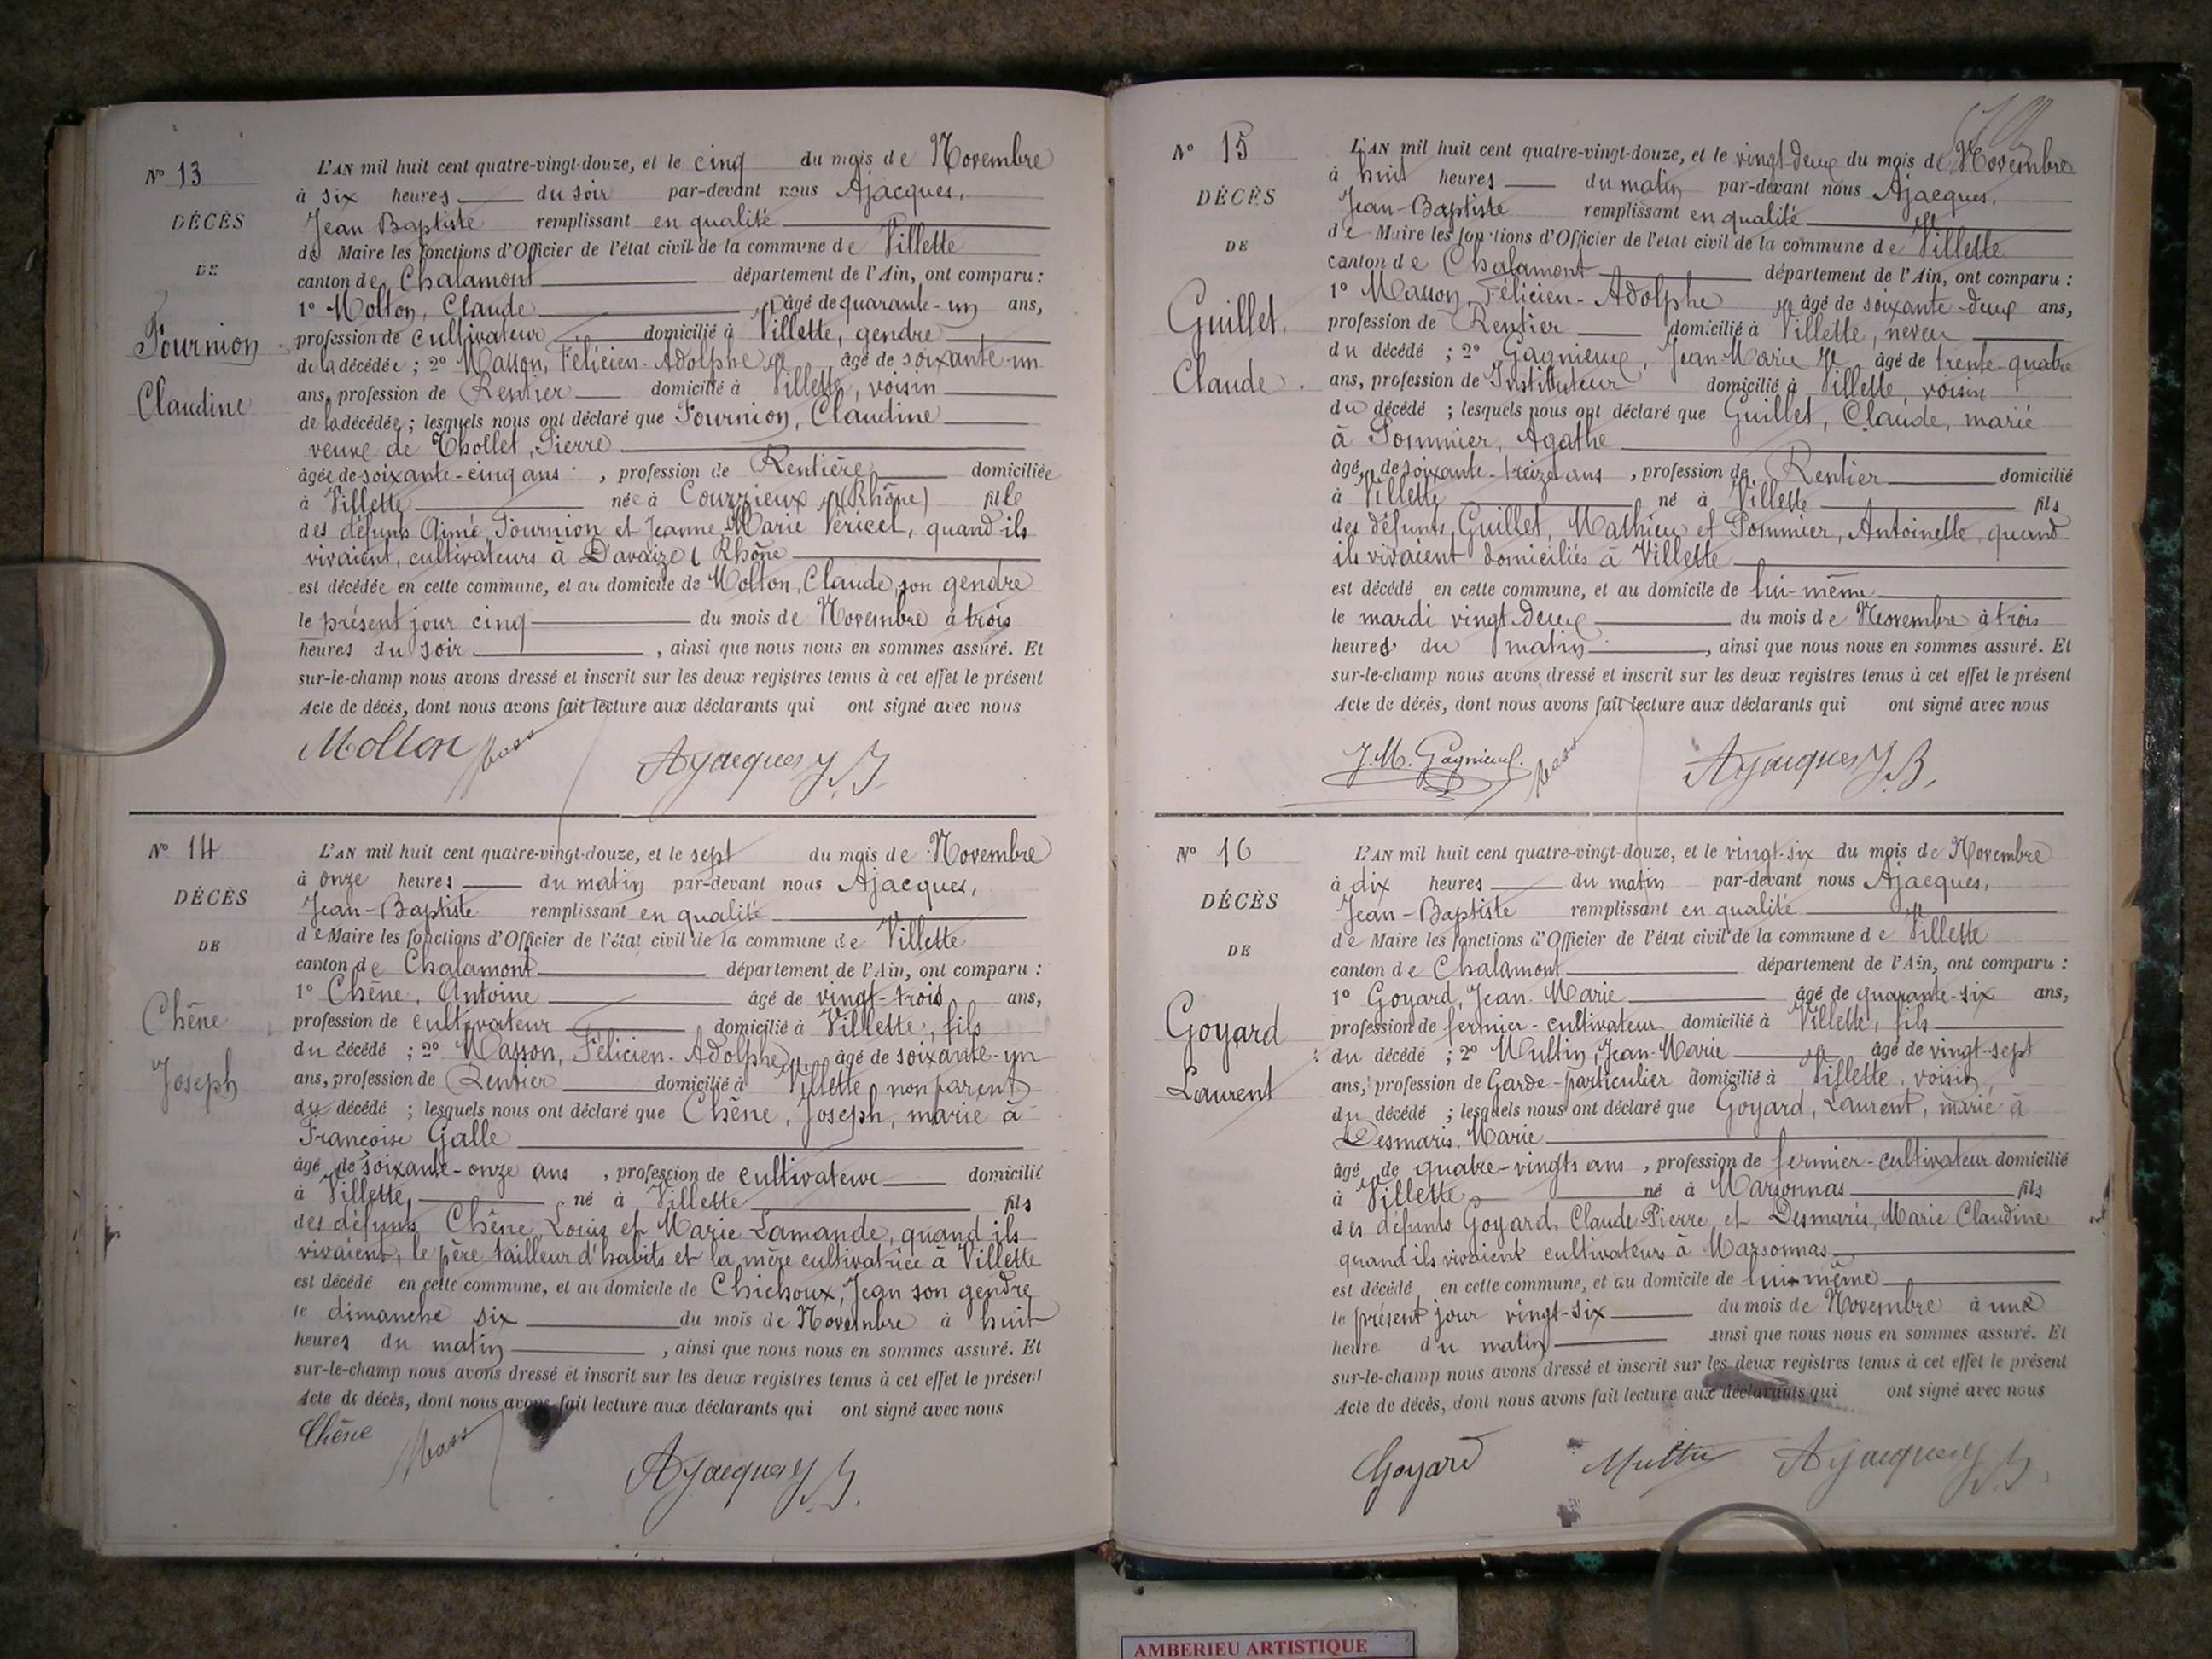 N° 13
DÉCÈS
DE
Fournion
Claudine
L'AN mil huit cent quatre-vingt-douze, et le cinq du mois de Novembre
à six heures du soir par-devant nous Ajacques,
Jean Baptiste remplissant en qualité
de Maire les fonctions d'Officier de l'état civil de la commune de Villette
canton de Chalamont département de l'Ain, ont comparu :
1° Molton, Claude âgé de quarante-un ans,
profession de cultivateur domicilié à Villette, gendre
de la décédée ; 2° Masson, Félicien-Adolphe âgé de soixante-un
ans, profession de Rentier domicilié à Villette, voisin
de la décédée ; lesquels nous ont déclaré que Fournion, Claudine
veuve de Thollet, Pierre
âgée de soixante-cinq ans , profession de Rentière domiciliée
à Villette née à Courzieux (Rhône) fille
des défunts Aimé Fournion et Jeanne Marie Véricel, quand ils
vivaient, cultivateurs à Davaize (Rhône
est décédée en cette commune, et au domicile de Molton, Claude, son gendre
le présent jour cinq du mois de Novembre à trois
heures du soir , ainsi que nous nous en sommes assuré. Et
sur-le-champ nous avons dressé et inscrit sur les deux registres tenus à cet effet le présent
Acte de décès, dont nous avons fait lecture aux déclarants qui ont signé avec nous
Molton Mass Ajacques J.B.
N° 14
DÉCÈS
DE
Chêne
Joseph
L'AN mil huit cent quatre-vingt-douze, et le sept du mois de Novembre
à onze heures du matin par-devant nous Ajacques,
Jean-Baptiste remplissant en qualité
de Maire les fonctions d'Officier de l'état civil de la commune de Villette
canton de Chalamont département de l'Ain, ont comparu :
1° Chêne, Antoine âgé de vingt-trois ans,
profession de cultivateur domicilié à Villette, fils
du décédé ; 2° Masson, Félicien-Adolphe âgé de soixante-un
ans, profession de Rentier domicilié à Villette non parent
du décédé ; lesquels nous ont déclaré que Chêne, Joseph, marié à
Françoise Galle
âgé de soixante-onze ans , profession de cultivateur domicilié
à Villette, né à Villette fils
des défunts Chêne Louis et Marie Lamande, quand ils
vivaient, le père tailleur d'habits et la mère cultivatrice à Villette
est décédé en cette commune, et au domicile de Chichoux, Jean son gendre
le dimanche six du mois de Novembre à huit
heures du matin , ainsi que nous nous en sommes assuré. Et
sur-le-champ nous avons dressé et inscrit sur les deux registres tenus à cet effet le présent
Acte de décès, dont nous avons fait lecture aux déclarants qui ont signé avec nous
Chêne Mass Ajacques J.B.
N° 15
DÉCÈS
DE
Guillet
Claude
L'AN mil huit cent quatre-vingt-douze, et le vingt-deux du mois de Novembre
à huit heures du matin par-devant nous Ajacques,
Jean-Baptiste remplissant en qualité
de Maire les fonctions d'Officier de l'état civil de la commune de Villette
canton de Chalamont département de l'Ain, ont comparu :
1° Masson, Félicien-Adolphe âgé de soixante-deux ans,
profession de Rentier domicilié à Villette, neveu
du décédé ; 2° Gagnieux, Jean-Marie âgé de trente-quatre
ans, profession de Instituteur domicilié à Villette, voisin
du décédé ; lesquels nous ont déclaré que Guillet, Claude, marié
à Pommier, Agathe
âgé de soixante-treize ans , profession de Rentier domicilié
à Villette né à Villette fils
des défunts Guillet, Mathieu et Pommier, Antoinette quand
ils vivaient domiciliés à Villette
est décédé en cette commune, et au domicile de lui-même
le mardi vingt-deux du mois de Novembre à trois
heures du matin , ainsi que nous nous en sommes assuré. Et
sur-le-champ nous avons dressé et inscrit sur les deux registres tenus à cet effet le présent
Acte de décès, dont nous avons fait lecture aux déclarants qui ont signé avec nous
J.M. Gagnieux. Mass Ajacques J.B.
N° 16
DÉCÈS
DE
Goyard
Laurent
L'AN mil huit cent quatre-vingt-douze, et le vingt-six du mois de Novembre
à dix heures du matin par-devant nous Ajacques,
Jean-Baptiste remplissant en qualité
de Maire les fonctions d'Officier de l'état civil de la commune de Villette
canton de Chalamont département de l'Ain, ont comparu :
1° Goyard, Jean-Marie âgé de quarante-six ans,
profession de fermier-cultivateur domicilié à Villette, fils
du décédé ; 2° Multin, Jean-Marie âgé de vingt-sept
ans, profession de Garde-particulier domicilié à Villette, voisin,
du décédé ; lesquels nous ont déclaré que Goyard, Laurent, marié à
Desmaris, Marie
âgé de quatre-vingts ans , profession de fermier-cultivateur domicilié
à Villette, né à Marsonnas fils
des défunts Goyard Claude-Pierre, et Desmaris, Marie Claudine
quand ils vivaient cultivateurs à Marsonnas
est décédé en cette commune, et au domicile de lui-même
le présent jour vingt-six du mois de Novembre à une
heure du matin ainsi que nous nous en sommes assuré. Et
sur-le-champ nous avons dressé et inscrit sur les deux registres tenus à cet effet le présent
Acte de décès, dont nous avons fait lecture aux déclarants qui ont signé avec nous
Goyard Multin Ajacques J.B.
AMBERIEU ARTISTIQUE